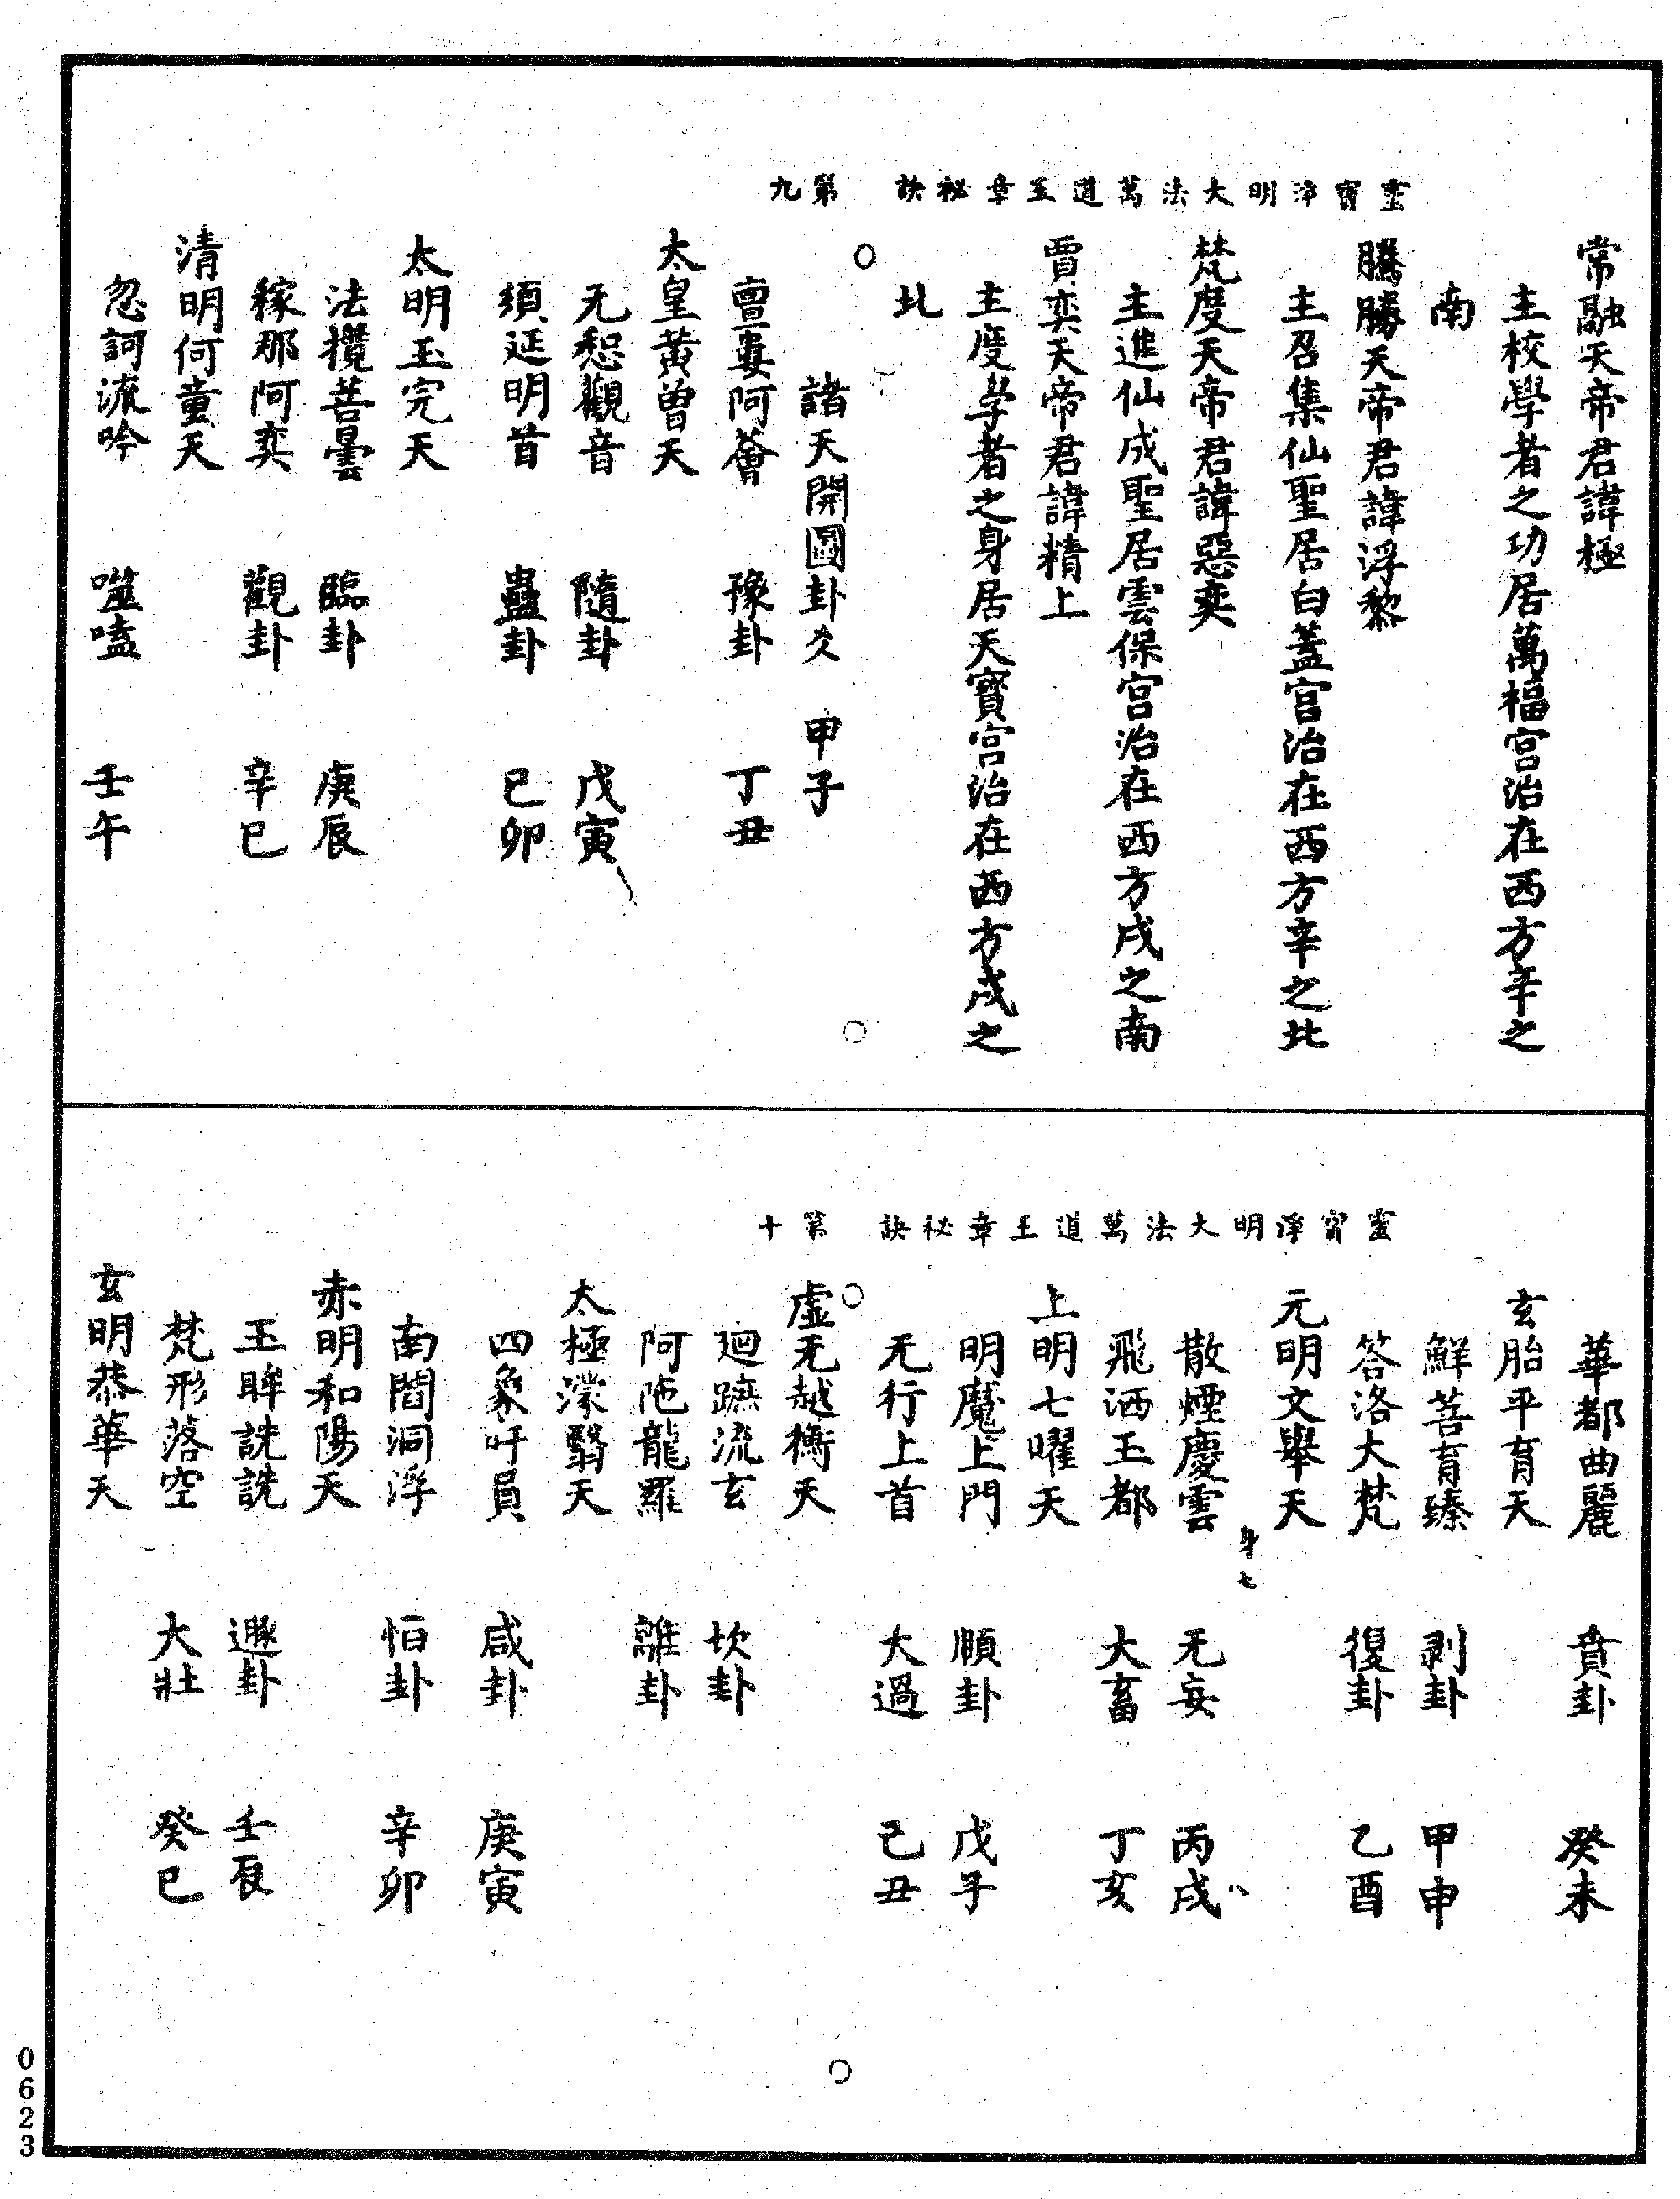 靈寶淨明大法萬道玉章秘訣 第九
常融天帝君諱極
主校學者之功居萬福宮治在西方辛之
南
騰勝天帝君諱浮黎
主召集仙聖居白蓋宮治在西方辛之北
梵度天帝君諱惡奕
主進仙成聖居雲保宮治在西方戌之南
賈奕天帝君諱精上
主度學者之身居天寶宮治在西方戌之
北
諸天開圖卦久 甲子
亶婁阿薈 豫卦 丁丑
太皇黃曾天
无惒觀音 隨卦 戊寅
須延明首 蠱卦 已卯
太明玉完天
法攬菩曇 臨卦 庚辰
稼那阿奕 觀卦 辛巳
清明何童天
忽訶流吟 噬嗑 壬午
靈寶淨明大法萬道王章秘訣 第十
華都曲麗 賁卦 癸未
玄胎平育天
鮮菩育臻 剥卦 甲申
答洛大梵 復卦 乙酉
元明文舉天
身七
散煙慶雲 无妄 丙戌
飛洒玉都 大畜 丁亥
上明七曜天
明魔上門 順卦 戊子
无行上首 大過 己丑
虛无越衡天
廻蹠流玄 坎卦
阿陁龍羅 離卦
太極濛翳天
四象吁員 咸卦 庚寅
南閻洞浮 恒卦 辛卯
赤明和陽天
玉眸詵詵 遯卦 壬辰
梵形落空 大壯 癸巳
玄明恭華天
0623